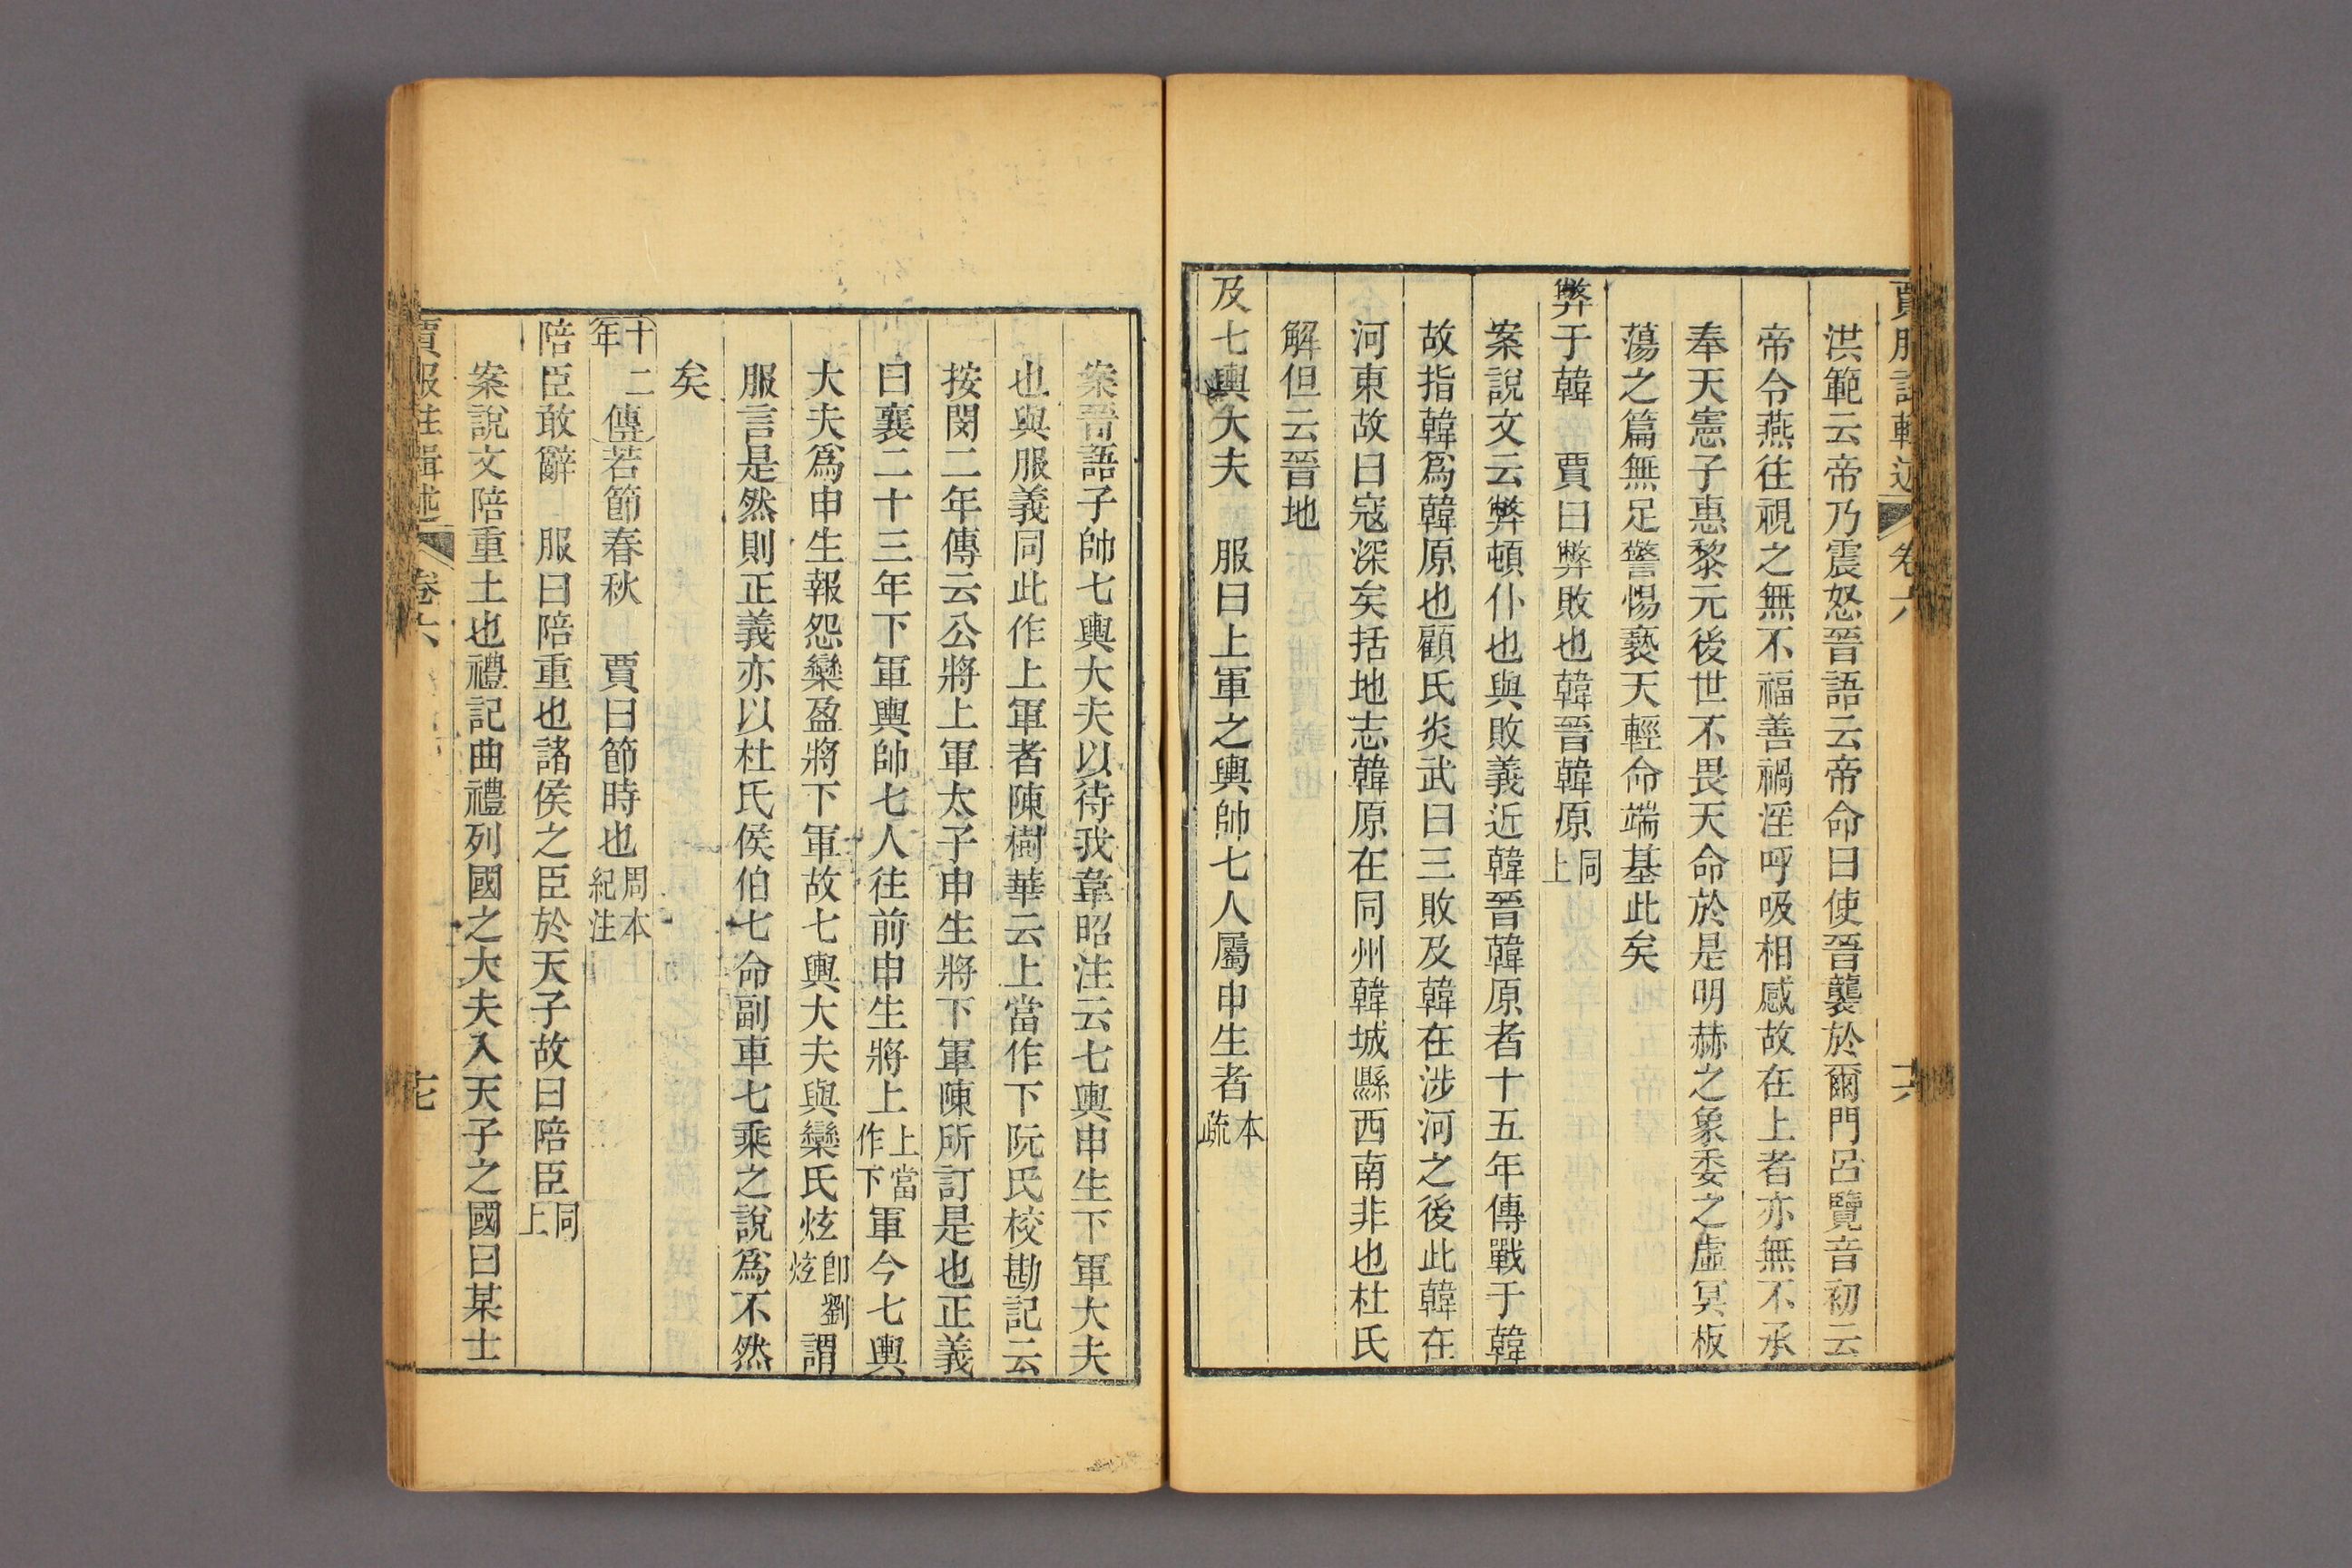 賈服註輯述 卷六 十六
洪範云帝乃震怒晉語云帝命曰使晉襲於爾門呂覽音初云
帝令燕往視之無不福善禍淫呼吸相感故在上者亦無不承
奉天憲子惠黎元後世不畏天命於是明赫之象委之虛冥板
蕩之篇無足警惕褻天輕命端基此矣
弊于韓　賈曰弊敗也韓晉韓原同上
案說文云弊頓仆也與敗義近韓晉韓原者十五年傳戰于韓
故指韓爲韓原也顧氏炎武曰三敗及韓在涉河之後此韓在
河東故曰寇深矣括地志韓原在同州韓城縣西南非也杜氏
解但云晉地
及七輿大夫　服曰上軍之輿帥七人屬申生者本疏
案晉語子帥七輿大夫以待我韋昭注云七輿申生下軍大夫
也與服義同此作上軍者陳樹華云上當作下阮氏校勘記云
按閔二年傳云公將上軍太子申生將下軍陳所訂是也正義
曰襄二十三年下軍輿帥七人往前申生將上上當作下軍今七輿
大夫爲申生報怨欒盈將下軍故七輿大夫與欒氏炫卽劉炫謂
服言是然則正義亦以杜氏侯伯七命副車七乘之說爲不然
矣
十二年傳若節春秋　賈曰節時也周本紀注
陪臣敢辭　服曰陪重也諸侯之臣於天子故曰陪臣同上
案說文陪重土也禮記曲禮列國之大夫入天子之國曰某士
賈服註輯述 卷六 十七